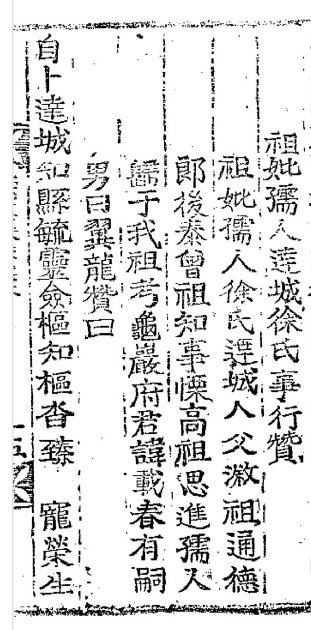 祖妣孺人達城徐氏事行贊
祖妣孺人徐氏達城人父 祖通德
郎後泰曾祖知事慄高祖思進孺人
歸于我祖考龜巖府君諱載春有嗣
男曰翼龍贊曰
自卜達城知縣毓靈僉樞知樞沓臻　寵榮生